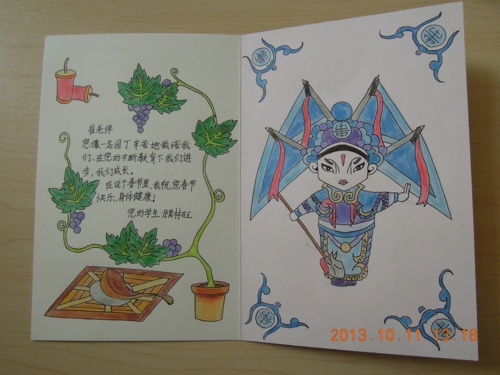 崔老师:
您像一名园丁辛苦地栽培我
们,在您的不断教育下我们进
步,我们成长。
在这个春节里,我祝您春节
快乐,身体健康!
您的学生
2013.10.11 13:18